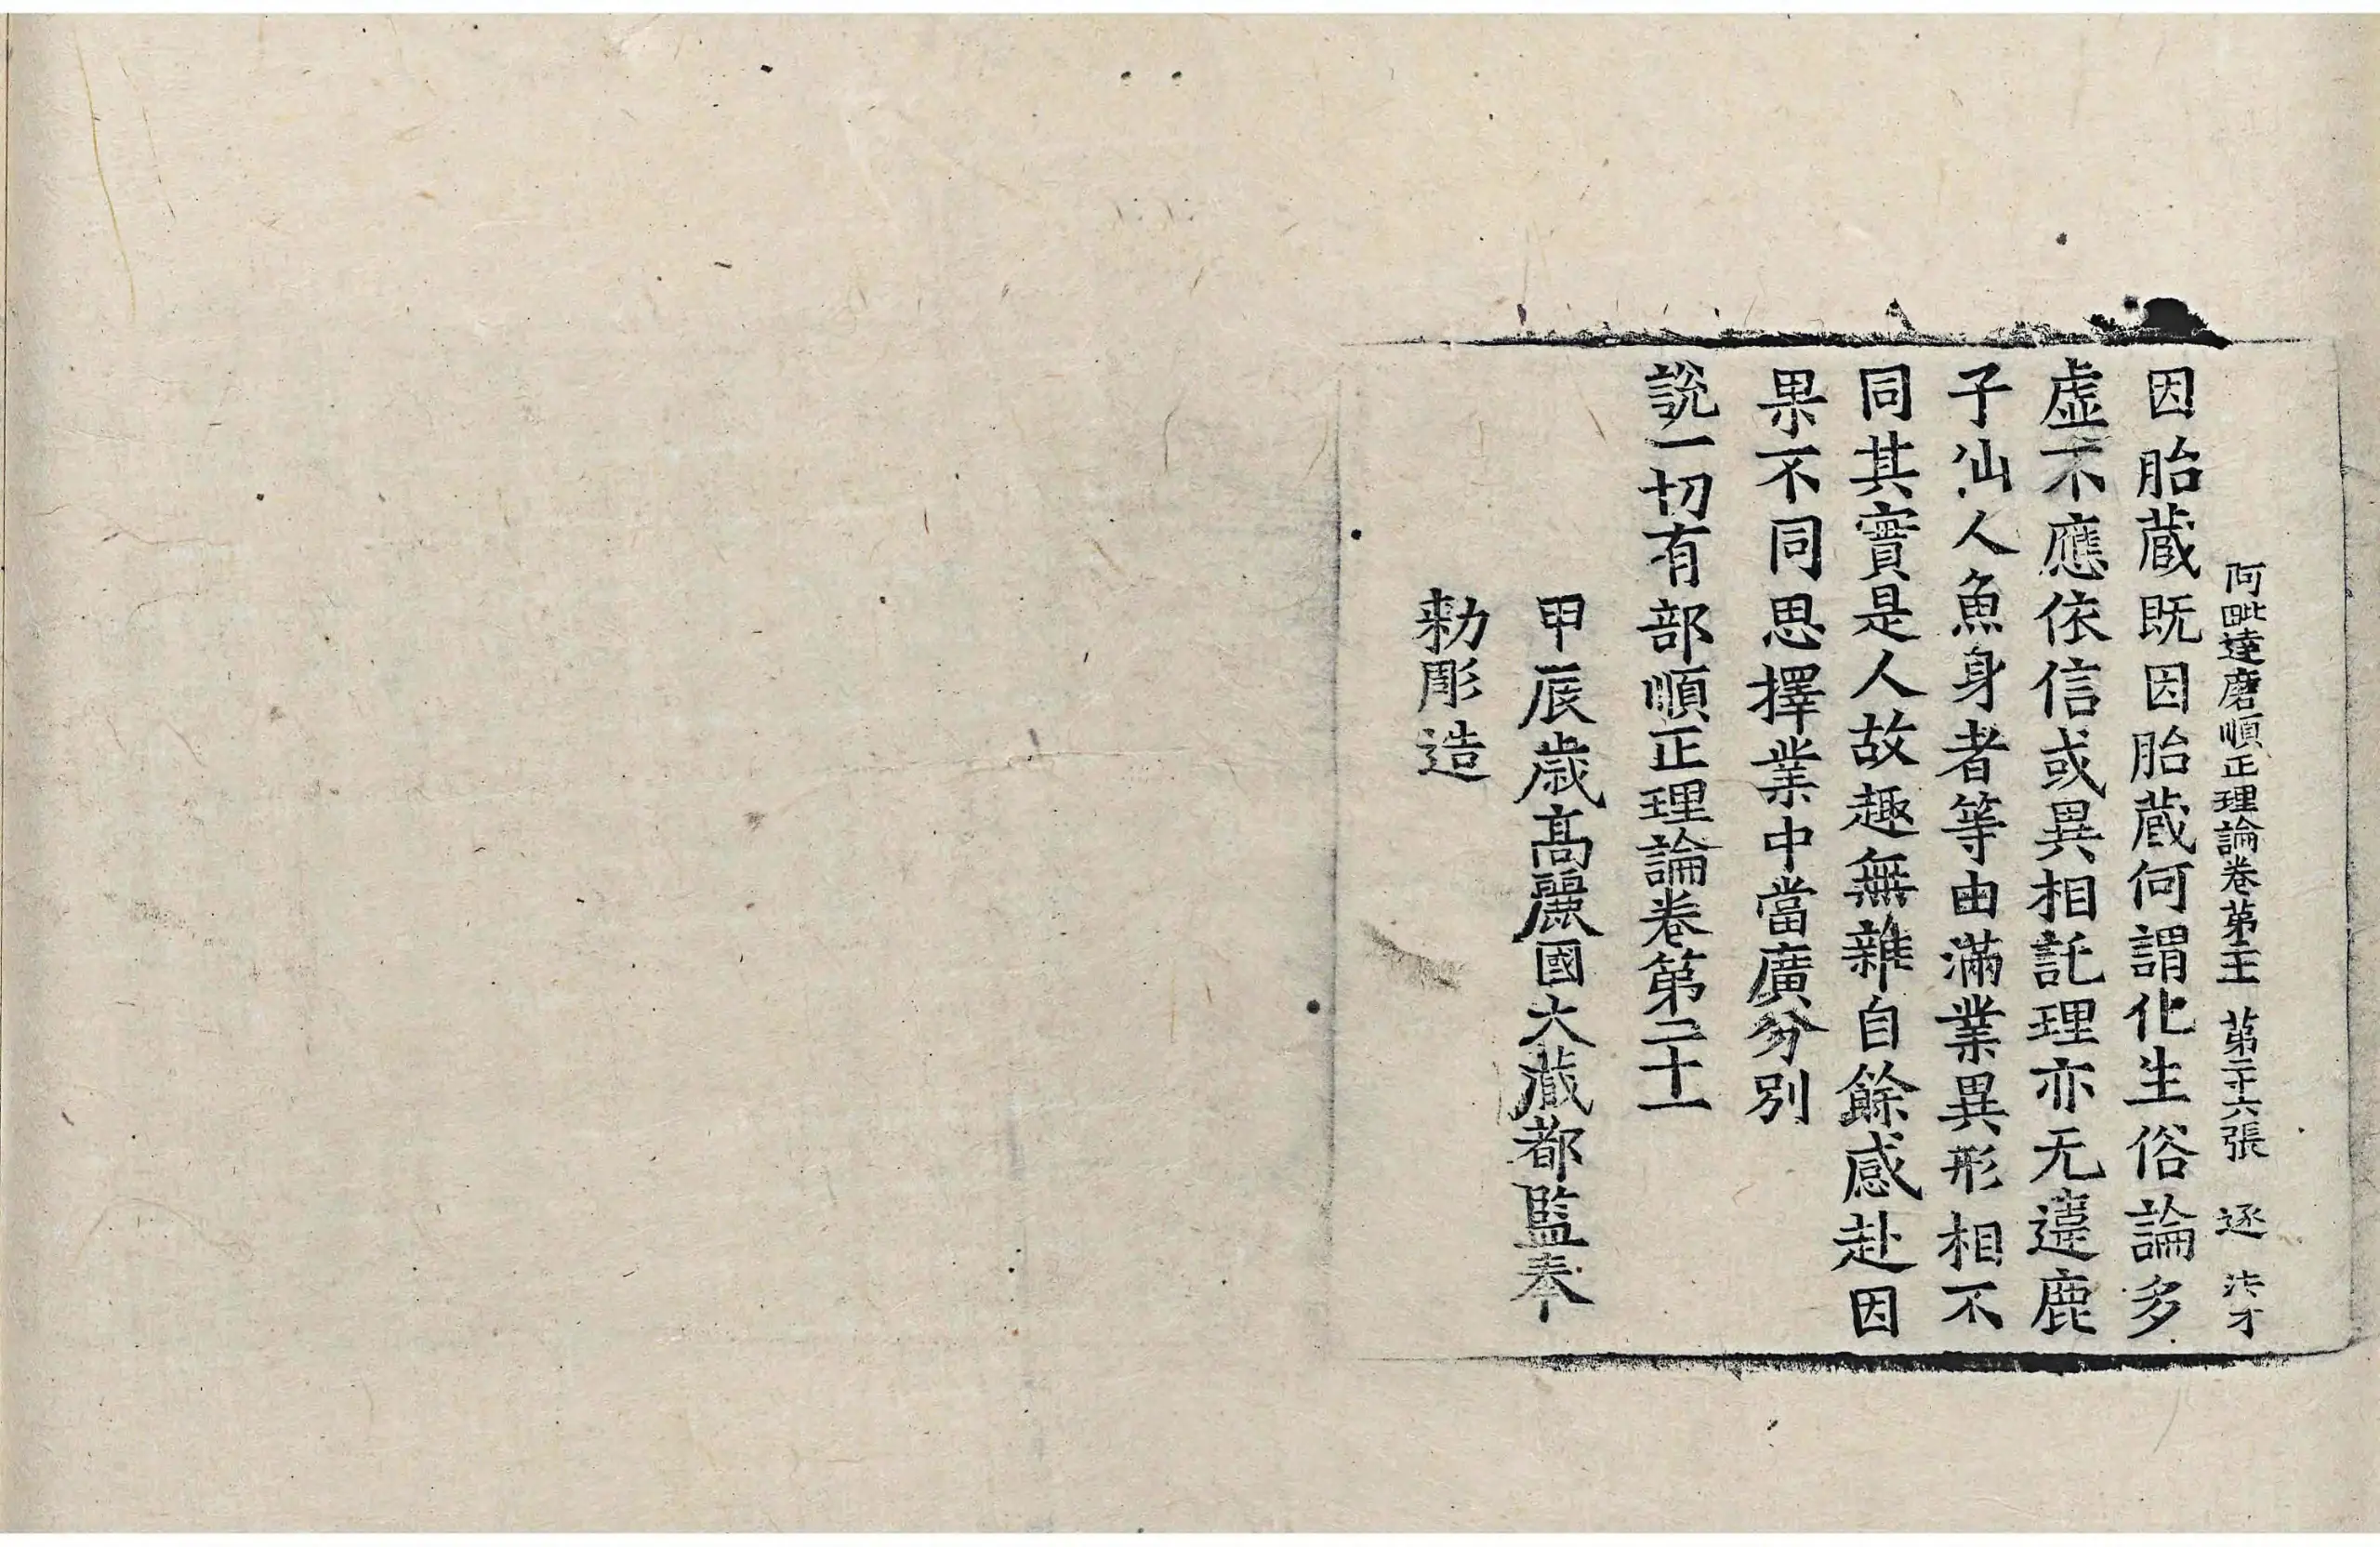 阿毗達磨順正理論卷第二十一 第二十六張 逐
因胎蔵既因胎蔵何謂化生俗論多
虛不應依信或異相託理亦无違鹿
子仙人魚身者等由滿業異形相不
同其實是人故趣無雜自餘感赴因
果不同思擇業中當廣分別
說一切有部順正理論卷第二十一
甲辰歲高麗國大藏都監奉
勑彫造